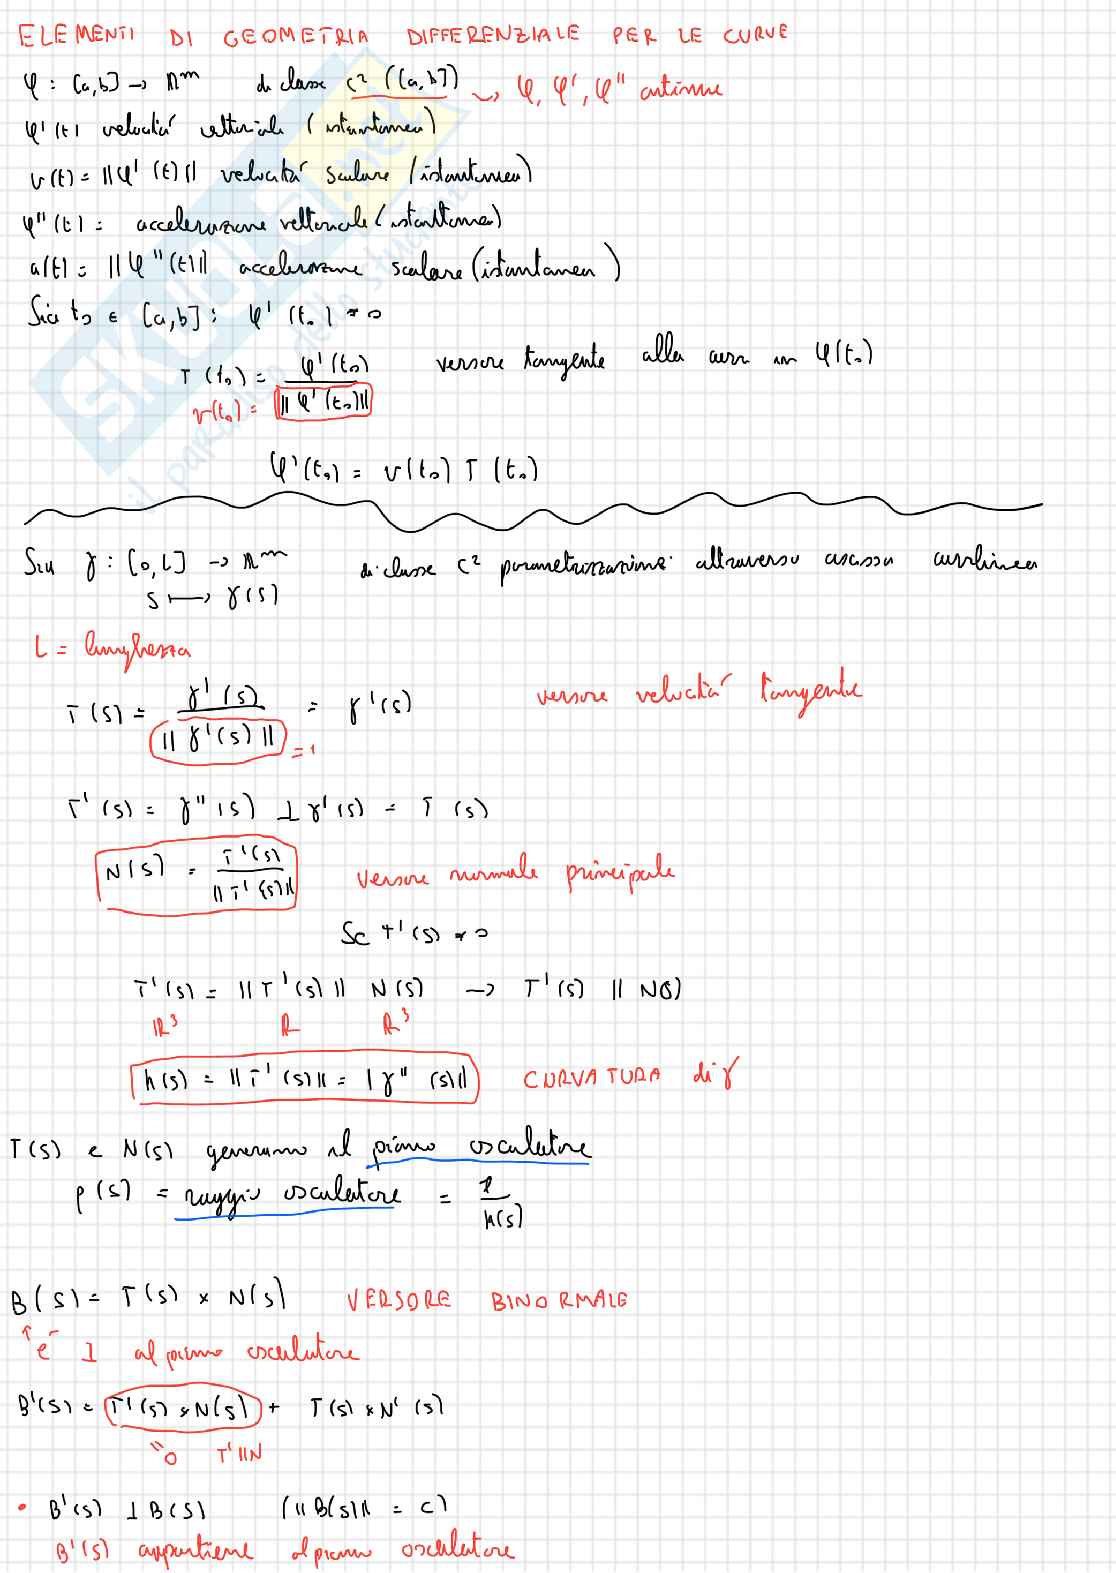 ELEMENTI DI GEOMETRIA DIFFERENZIALE PER LE CURVE
φ : [a,b] → ℝᵐ di classe C² ([a,b]) → φ, φ', φ'' continue
φ'(t) velocità vettoriale (istantanea)
v(t) = ||φ'(t)|| velocità scalare (istantanea)
φ''(t) = accelerazione vettoriale (istantanea)
a(t) = ||φ''(t)|| accelerazione scalare (istantanea)
Sia t₀ ∈ [a,b] : φ'(t₀) ≠ 0
T(t₀) = φ'(t₀) / ||φ'(t₀)|| versore tangente alla curva in φ(t₀)
v(t₀) =
φ'(t₀) = v(t₀) T(t₀)
Sia γ : [0,L] → ℝᵐ di classe C² parametrizzazione attraverso ascissa curvilinea
s ↦ γ(s)
L = lunghezza
T(s) = γ'(s) / ||γ'(s)|| = γ'(s) versore velocità tangente
= 1
T'(s) = γ''(s) ⊥ γ'(s) = T(s)
N(s) = T'(s) / ||T'(s)|| versore normale principale
Se T'(s) ≠ 0
T'(s) = ||T'(s)|| N(s) → T'(s) || N(s)
ℝ³ ℝ ℝ³
h(s) = ||T'(s)|| = ||γ''(s)|| CURVATURA di γ
T(s) e N(s) generano il piano osculatore
ρ(s) = raggio osculatore = 1 / h(s)
B(s) = T(s) × N(s) VERSORE BINORMALE
↑ è ⊥ al piano osculatore
B'(s) = T'(s) × N(s) + T(s) × N'(s)
"0 T' || N
• B'(s) ⊥ B(s) (||B(s)|| = c)
B'(s) appartiene al piano osculatore
SKUOLA.net
il paradiso dello studente